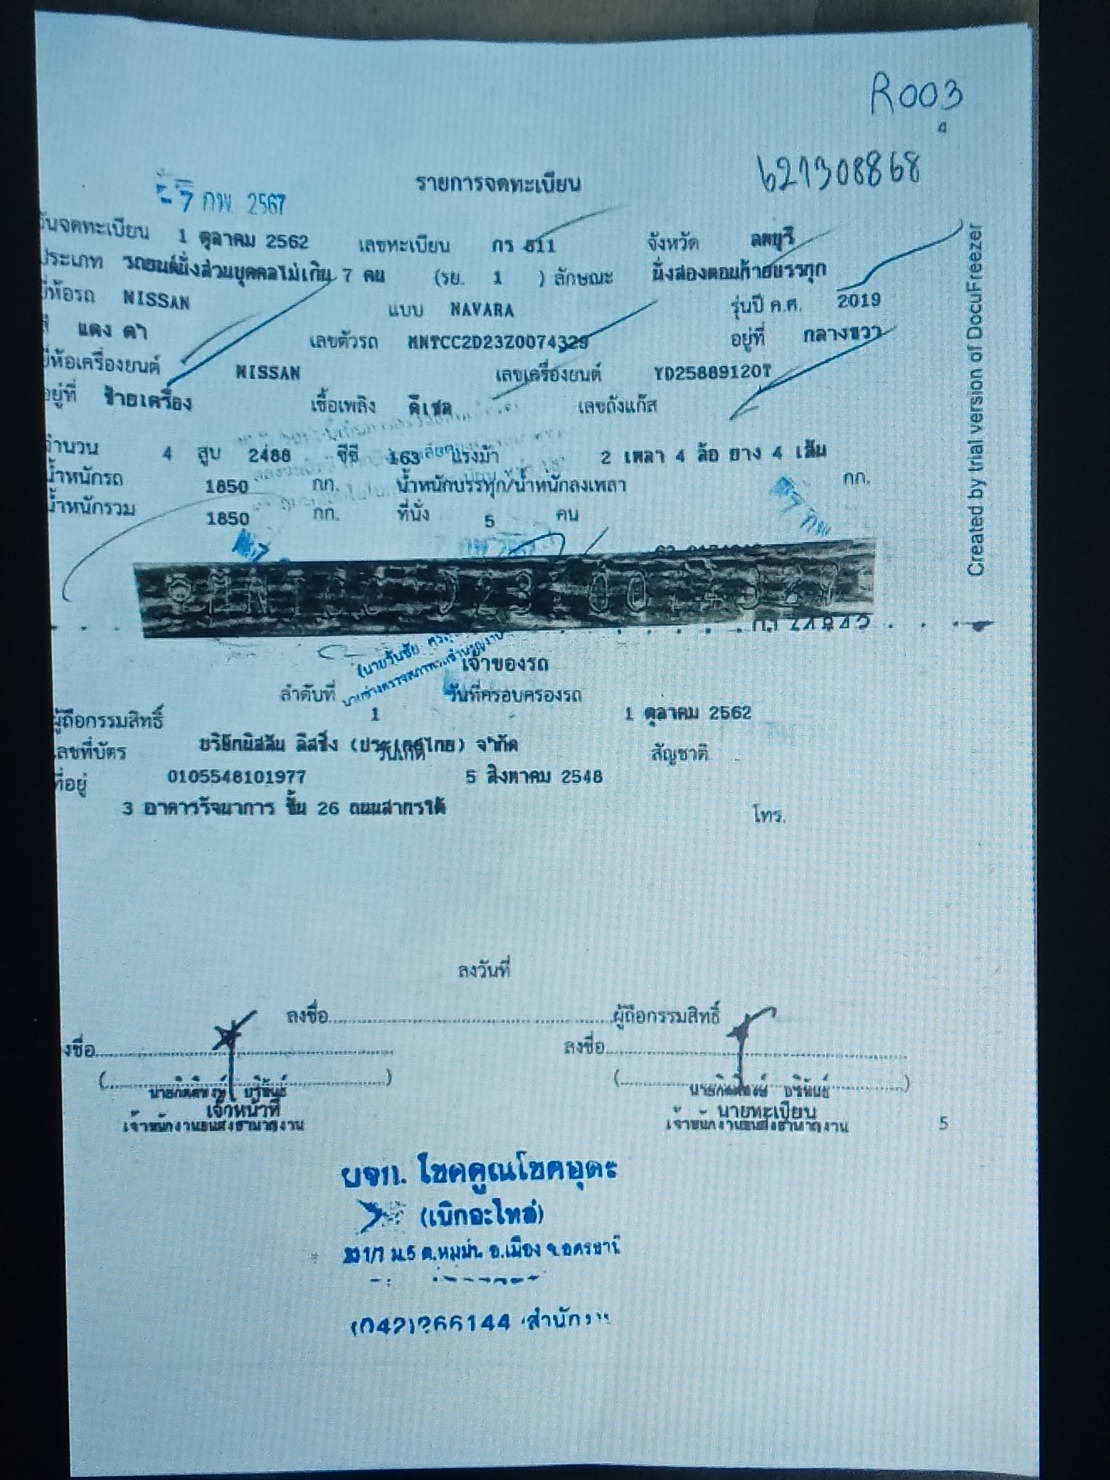 R003
4
621308868
-7 กพ 2567
รายการจดทะเบียน
วันจดทะเบียน 1 ตุลาคม 2562 เลขทะเบียน กร 811 จังหวัด ลพบุรี
ประเภท รถยนต์นั่งส่วนบุคคลไม่เกิน 7 คน (รย. 1 ) ลักษณะ นั่งสองตอนท้ายบรรทุก
ยี่ห้อรถ NISSAN แบบ NAVARA รุ่นปี ค.ศ. 2019
สี แดง ดำ เลขตัวรถ MNTCC2D23Z0074329 อยู่ที่ กลางขวา
ยี่ห้อเครื่องยนต์ NISSAN เลขเครื่องยนต์ YD25889120T
อยู่ที่ ซ้ายเครื่อง เชื้อเพลิง ดีเซล เลขถังแก๊ส
จำนวน 4 สูบ 2488 ซีซี 163 แรงม้า 2 เพลา 4 ล้อ ยาง 4 เส้น
น้ำหนักรถ 1850 กก. น้ำหนักบรรทุก/น้ำหนักลงเพลา กก.
น้ำหนักรวม 1850 กก. ที่นั่ง 5 คน
เจ้าของรถ
ลำดับที่ 1 วันที่ครอบครองรถ 1 ตุลาคม 2562
ผู้ถือกรรมสิทธิ์ บริษัทนิสสัน ลีสซิ่ง (ประเทศไทย) จำกัด
เลขที่บัตร 0105548101977 วันเกิด 5 สิงหาคม 2548 สัญชาติ
ที่อยู่ 3 อาคารรัจนาการ ชั้น 26 ถนนสาทรใต้
โทร.
ลงวันที่
ลงชื่อ ผู้ถือกรรมสิทธิ์
ลงชื่อ ลงชื่อ
เจ้าหน้าที่ นายทะเบียน
เจ้าพนักงานขนส่งชำนาญงาน เจ้าพนักงานขนส่งชำนาญงาน
5
ผจก. โชคคูณโชคอุดะ
(เบิกอะไหล่)
ม.5 ต.หมูม่น อ.เมือง จ.อุดรธานี
(042)266144 (สำนักงาน)
Created by trial version of DocuFreezer